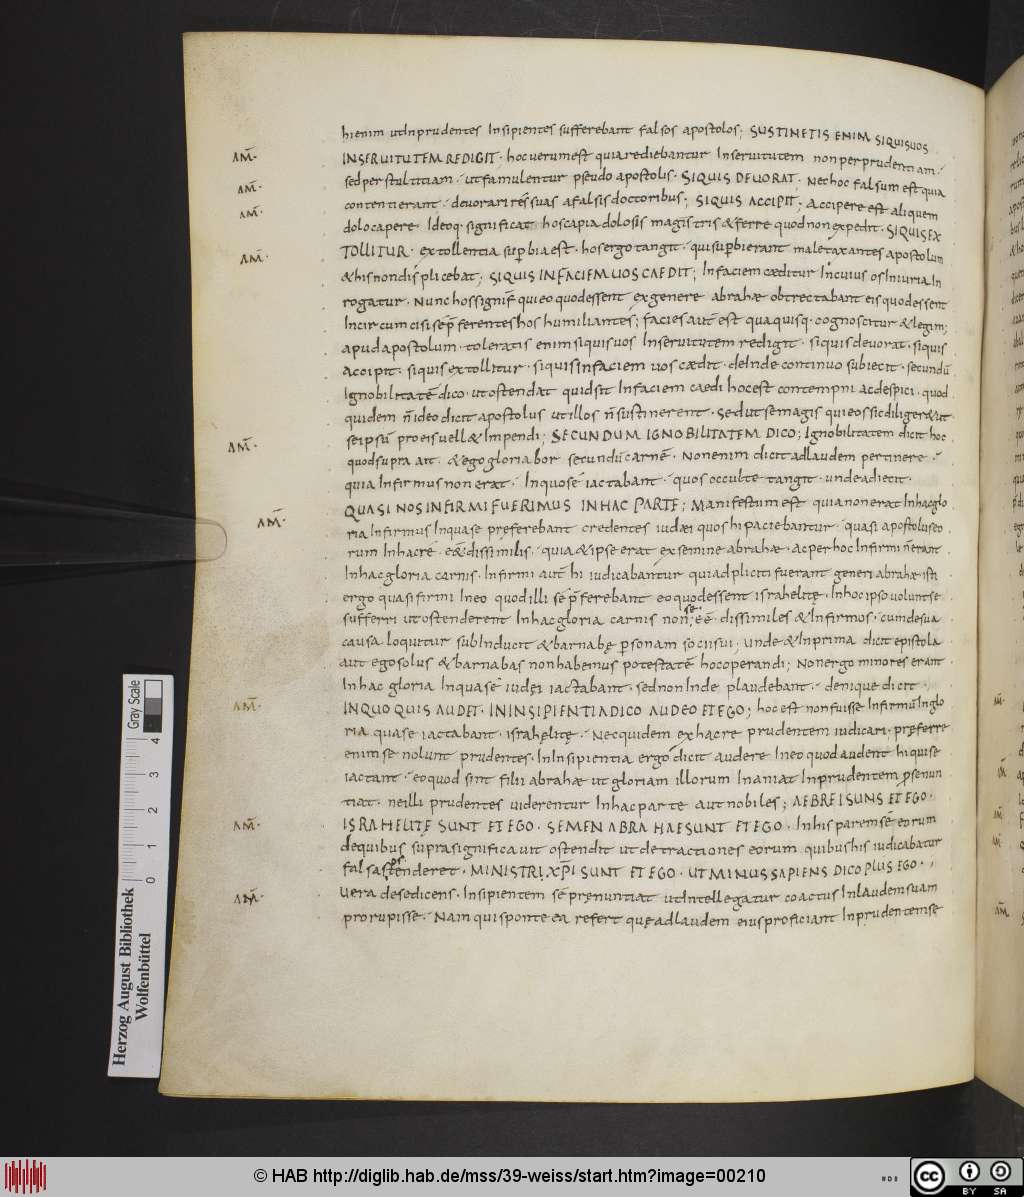 hienim utInprudentes Insipientes sufferebant falsos apostolos; SUSTINETIS ENIM SIQUISUOS
AM̅· INSERUITUTEM REDIGIT· hocuerumest quiarediebantur Inseruitutem nonperprudentiam·
sedperstultitiam· utfamulentur pseudo apostolis· SIQUIS DEUORAT· Nechoc falsum est quia
AM̅· contentierant· deuorari res̅suas afalsisdoctoribus; SIQUIS ACCIPIT; Accipere est aliquem
AM̅· dolocapere Ideoq· significat hoscapia dolosis magistris &ferre quodnonexpedit· SIQUISEX
AM̅· TOLLITUR· extollentia sup̅biaest· hosergo tangit· quisup̅bierant maletaxantes apostolum
&hisnondisplicebat; SIQUIS INFACIEM UOS CAEDIT; Infaciem cæditur Incuius osIniuria In
rogatur· Nunchossignif̅ quieo quodessent exgenere abrahæ obtrectabant eis quodessent
Incircumcisi sep̅ferenteshos humiliantes; facies aut̅ est quaquisq· cognoscitur &legim;
apudapostolum· toleratis enimsiquisuos Inseruitutem redigit· siquisdeuorat· siquis
Accipit· siquis extollitur· siquisInfaciem uos cædit· deInde continuo subiecit· secundu̅
Ignobilitate̅ dico· utostendat quidsit Infaciem caedi hocest contempni acdespici· quod
quidem n̅ideo dicit apostolus utillos n̅sustinerent· Sedut semagis quieossicdiliger&ut
seipsu̅ proeisuell& Impendi; SECUNDUM IGNOBILITATEM DICO; Ignobilitatem dicit hoc
AM̅· quodsupra ait· &egogloriabor secundu̅carne̅· Nonenim dicit adlaudem pertinere·
quia Infirmusnonerat· Inquose̅ iactabant· quos occulte tangit· undeadiecit·
QUASI NOSINFIRMIFUERIMUS INHAC PARTE; Manifestum est quianonerat Inhacglo
AM̅· ria Infirmus Inquase preferebant credentes iudæi quos hi paciebantur· quasi apostoluseo
rum Inhacre· ee̅dissimilis· quia&ipse erat exsemine abrahæ· acperhoc Infirmi n̅erant
Inhacgloria carnis· Infirmi aut̅ hi iudicabantur quiadpliciti fuerant generi abrahæ isti
ergo quasi firmi Ineo quodilli sep̅ferebant eoquodessent israhelitę· Inhocipsouoluntse
sufferri utostenderent Inhacgloria carnis non se ee̅ dissimiles &Infirmos· cumdesua
causa loquitur subInducit &barnabę p̅sonam sociisui; unde &Inprima dicit epistola
aut egosolus &barnabas nonhabemus potestate̅ hocoperandi; Nonergo minores erant
Inhac gloria Inquase iudęi iactabant· sednonInde plaudebant· denique dicit·
AM̅· INQUO QUIS AUDET· ININSIPIENTIADICO AUDEO ETEGO; hocest nonfuisse Infirmu̅Inglo
ria quase iactabant· israhęlitę· Necquidem exhacre prudentem iudicari· pręferre
enimse nolunt prudentes· InInsipientia ergo dicit audere Ineo quodaudent hiquise
iactant· eoquod sint filii abrahæ utgloriam illorum Inaniat Inprudentem p̅senun
tiat· neilli prudentes uiderentur Inhacparte aut nobiles; AEBREISUNS ETEGO·
AM̅· ISRAHELITĘ SUNT ETEGO· SEMEN ABRAHAESUNT ETEGO· Inhisparemse̅ eorum
dequibus suprasignificauit ostendit utdetractiones eorum quibushis iudicabatur
falsas ostenderet· MINISTRI XP̅I SUNT ETEGO· UTMINUSSAPIENS DICOPLUSEGO·
AM̅· uera desedicens· Insipientem se̅ prenuntiat utIntellegatur coactus Inlaudemsuam
prorupisse· Nam quisponte ea refert quęadlaudem eiusproficiant Inprudentemse
Herzog August Bibliothek
Wolfenbüttel
Gray Scale
0 1 2 3 4
© HAB http://diglib.hab.de/mss/39-weiss/start.htm?image=00210
cc BY SA